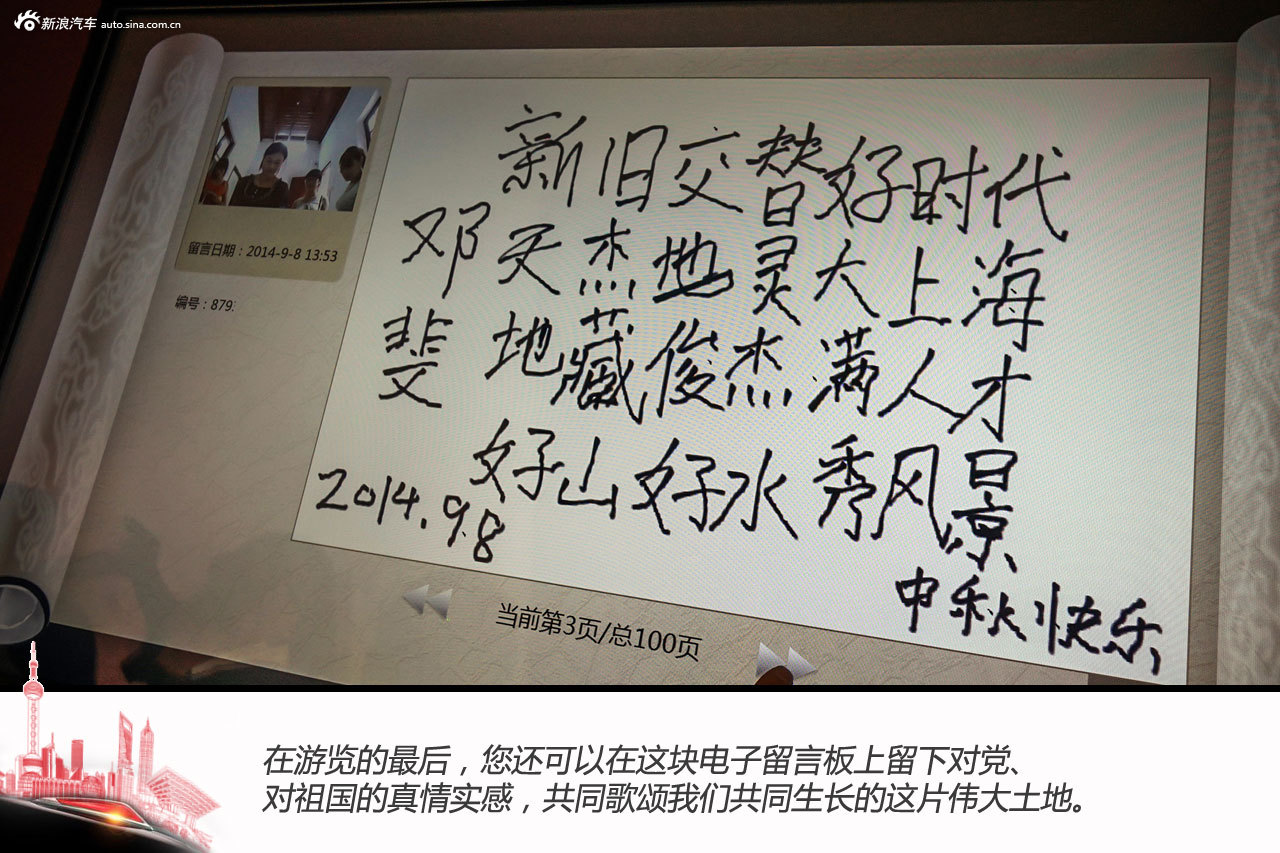 新浪汽车 auto.sina.com.cn
留言日期：2014-9-8 13:53
编号：879
新旧交替好时代
邓 天杰地灵大上海
斐 地藏俊杰满人才
好山好水秀风景
2014.9.8
中秋快乐
当前第3页/总100页
在游览的最后，您还可以在这块电子留言板上留下对党、
对祖国的真情实感，共同歌颂我们共同生长的这片伟大土地。